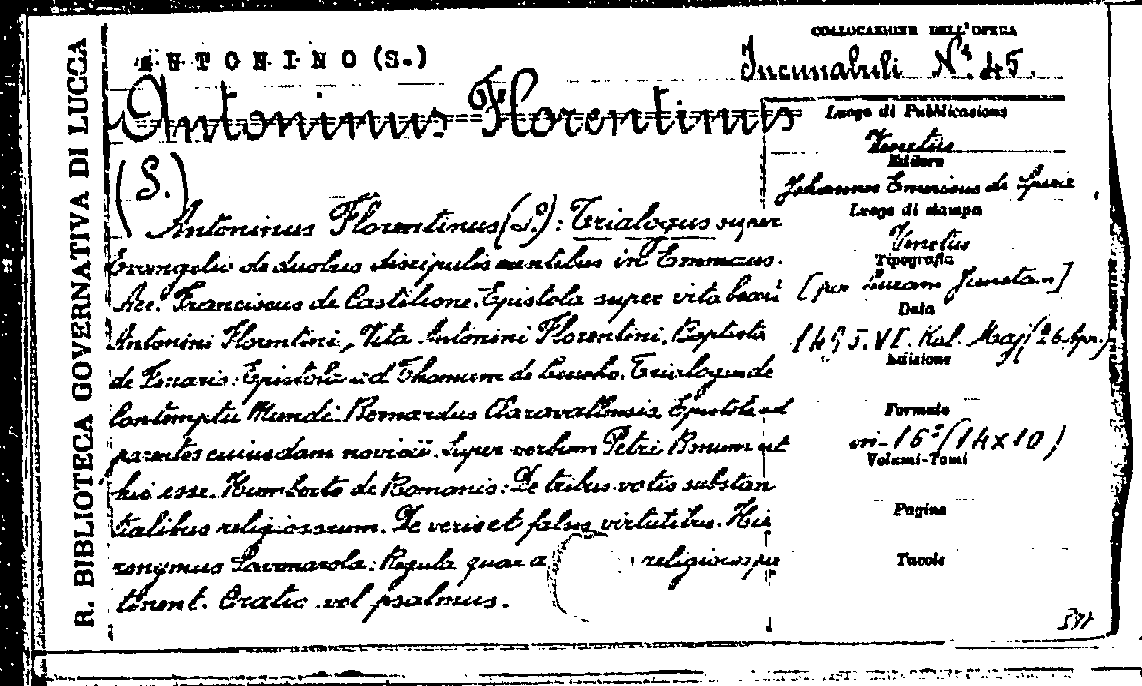 R. BIBLIOTECA GOVERNATIVA DI LUCCA
ANTONINO (S.)
Antoninus Florentinus
(S.)
Antoninus Florentinus (S.): Trialogus super
Evangelio de duobus discipulis euntibus in Emmaus.
Acc. Franciscus de Castilione. Epistola super vita beati
Antonini Florentini, Vita Antonini Florentini. Baptista
de Finaris: Epistola ad Thomam de Trialogus de
Contemptu Mundi. Bernardus Claravallensis Epistola ad
parentes cuiusdam novicii. Super verbum Petri Bonum est
hic esse. Humberto de Romanis: De tribus votis substan
tialibus religiosorum. De veris et falsis virtutibus. Hie
ronymus Savonarola: Regula quae a religiosos pe
tinent. Oratio vel psalmus.
COLLOCAZIONE DELL'OPERA
Incunabuli N.° 45.
Luogo di Pubblicazione
Venetiis
Editore
Johannes Emericus de Spira
Luogo di stampa
Venetiis
Tipografia
[per
Data
1495. VI. Kal. Maj (26 Apr.)
Edizione
Formato
in-16° (14x10)
Volumi-Tomi
Pagine
Tavole